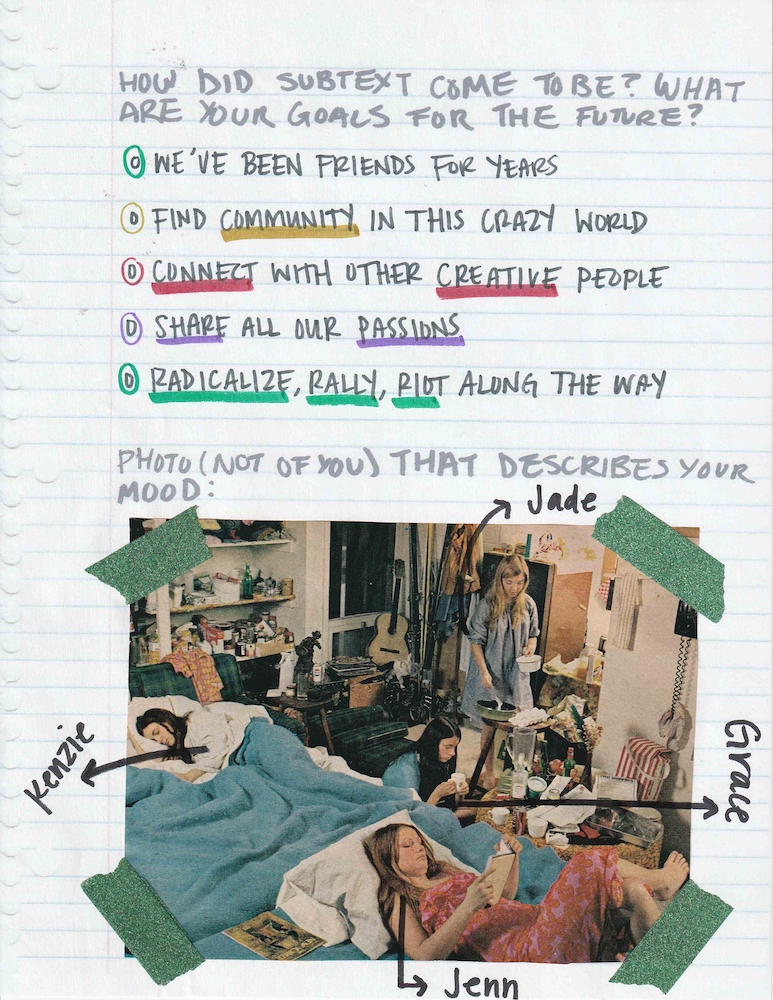 HOW DID SUBTEXT COME TO BE? WHAT
ARE YOUR GOALS FOR THE FUTURE?
WE'VE BEEN FRIENDS FOR YEARS
FIND COMMUNITY IN THIS CRAZY WORLD
CONNECT WITH OTHER CREATIVE PEOPLE
SHARE ALL OUR PASSIONS
RADICALIZE, RALLY, RIOT ALONG THE WAY
PHOTO (NOT OF YOU) THAT DESCRIBES YOUR
MOOD:
Jade
Kenzie
Grace
Jenn